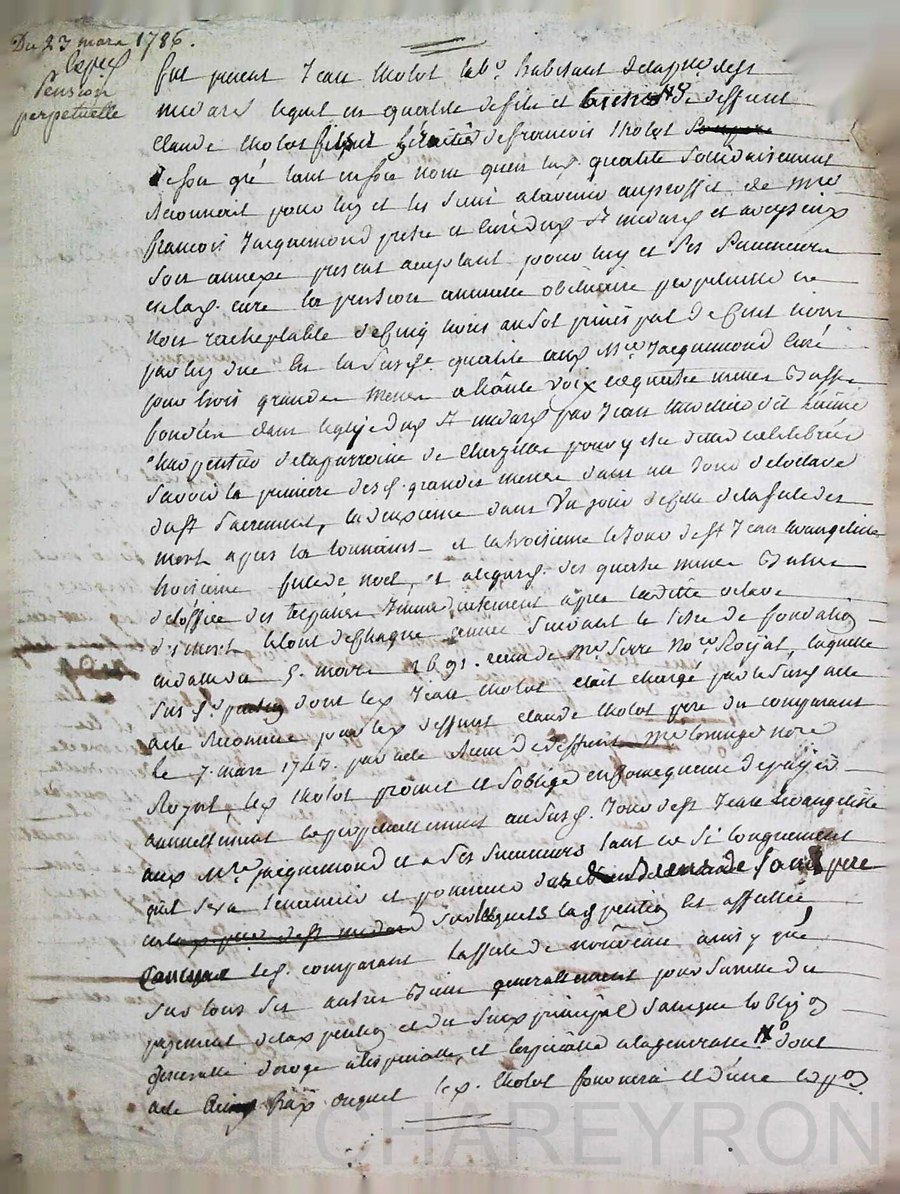 Du 23 mars 1786.
Pension
perpetuelle
fut present Jean Cholot labr. habitant
medard lequel en qualité de fils et heritier de deffunt
Claude Cholot heritier de francois Cholot
de son gré tant en son nom quen lad. qualité solidairement
Reconnoit pour luy et les siens alavenir auproffit de Mre
francois Jacquemond pretre et curé dud. St medard et aveyzieux
son annexe present acceptant pour luy et ses successeurs
en lad. cure la pension annuelle obituaire perpetuelle et
non racheptable de cinq livres au sol principal de cent livres
par luy due en la susd. qualité aud. Mre Jacquemond curé
pour trois grandes messes a haute voix et quatre messes basses
fondées dans leglise dud. St medard par Jean dit
charpentier de la parroisse de pour y etre celebrées
savoir la premiere desd. grandes messes dans un jour de loctave
du st Sacrement, la deuxieme dans un jour de celle de la fete des
morts apres la toussains et la troisieme le jour de st Jean Evangeliste
troisieme fete de noel, et alegard des quatre messes basses
de loffice des trepassés Immediatement apres ladite octave
des morts le tout de chaque année suivant le titre de fondation
en date du 5. mars 1691. recu de Me. Serre Nore. Royal, laquelle
susd. pention dont led. Jean Cholot etoit chargé par le susd.
acte Reconnue par led. deffunt Claude Cholot pere du comparant
le 7. mars 1743. par acte Recu de deffunt Me nore
Royal, led. Cholot promet et soblige en consequence de payer
annuellement et perpetuellement au susd. jour de st Jean Evangeliste
aud. Mre Jacquemond et a ses successeurs tant et si longuement
quil sera tenancier et possesseur des biens de sond. pere
en lad. prse de st medard sur lesquels lad. pention est affectée
led. comparant laffecte de nouveau ainsy que
sur tous ses autres biens generallement pour sureté du
payement de lad. pention et du susd. principal sans que lobligon
generalle deroge a la specialle, et la specialle a la generalle dont
acte fraix duquel led. Cholot fournira et dune exppon
Pascal CHAREYRON